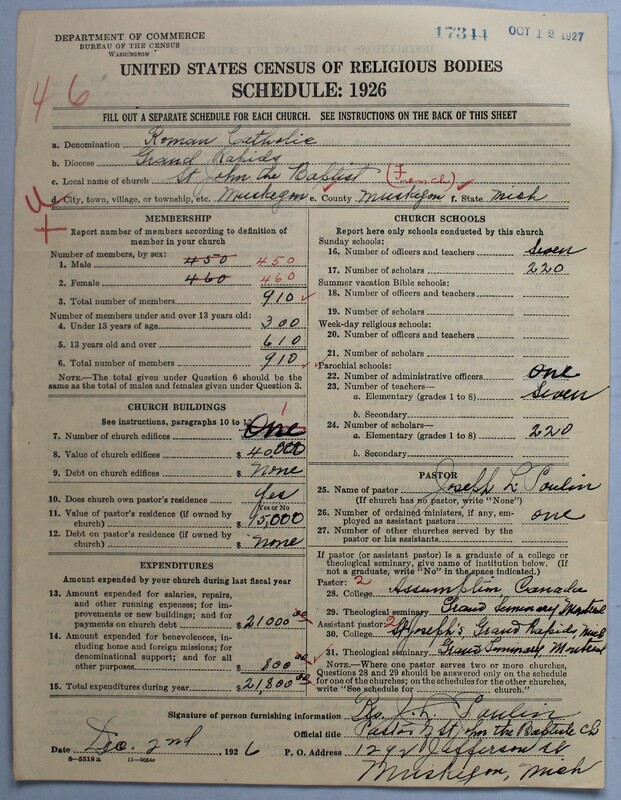 DEPARTMENT OF COMMERCE
BUREAU OF THE CENSUS
WASHINGTON
17344 OCT 12 1927
UNITED STATES CENSUS OF RELIGIOUS BODIES
SCHEDULE: 1926
46
FILL OUT A SEPARATE SCHEDULE FOR EACH CHURCH. SEE INSTRUCTIONS ON THE BACK OF THIS SHEET
a. Denomination Roman Catholic
b. Diocese Grand Rapids
c. Local name of church St John the Baptist (French)
d. City, town, village, or township, etc. Muskegon e. County Muskegon f. State Mich
MEMBERSHIP
Report number of members according to definition of
member in your church
Number of members, by sex:
1. Male 450 450
2. Female 460 460
3. Total number of members 910
Number of members under and over 13 years old:
4. Under 13 years of age 300
5. 13 years old and over 610
6. Total number of members 910
NOTE.—The total given under Question 6 should be the
same as the total of males and females given under Question 3.
CHURCH BUILDINGS
See instructions, paragraphs 10 to 12
7. Number of church edifices One 1
8. Value of church edifices $ 40000
9. Debt on church edifices $ None
10. Does church own pastor's residence Yes
Yes or No
11. Value of pastor's residence (if owned by
church) $ 15,000
12. Debt on pastor's residence (if owned by
church) $ None
EXPENDITURES
Amount expended by your church during last fiscal year
13. Amount expended for salaries, repairs,
and other running expenses; for im-
provements or new buildings; and for
payments on church debt $ 21000 00
14. Amount expended for benevolences,
including home and foreign missions; for
denominational support; and for all
other purposes $ 800 00
15. Total expenditures during year $ 21,800 00
CHURCH SCHOOLS
Report here only schools conducted by this church
Sunday schools:
16. Number of officers and teachers Seven
17. Number of scholars 220
Summer vacation Bible schools:
18. Number of officers and teachers
19. Number of scholars
Week-day religious schools:
20. Number of officers and teachers
21. Number of scholars
Parochial schools:
22. Number of administrative officers One
23. Number of teachers—
a. Elementary (grades 1 to 8) Seven
b. Secondary
24. Number of scholars—
a. Elementary (grades 1 to 8) 220
b. Secondary
PASTOR
25. Name of pastor Joseph L Poulin
(If church has no pastor, write "None")
26. Number of ordained ministers, if any, em-
ployed as assistant pastors one
27. Number of other churches served by the
pastor or his assistants
If pastor (or assistant pastor) is a graduate of a college or
theological seminary, give name of institution below. (If
not a graduate, write "No" in the space indicated.)
Pastor: 2
28. College Assumption, Canada
29. Theological seminary Grand Seminary Montreal
Assistant pastor: 2
30. College St Joseph's Grand Rapids, Mich
31. Theological seminary Grand Seminary Montreal
NOTE.—Where one pastor serves two or more churches,
Questions 28 and 29 should be answered only on the schedule
for one of the churches; on the schedules for the other churches,
write "See schedule for church."
Signature of person furnishing information Rev. J. L. Poulin
Official title Pastor of St. John the Baptiste Ch
Date Dec. 2nd, 1926 P. O. Address 1292 Jefferson St
8—5518 a 11—9054
Muskegon, Mich